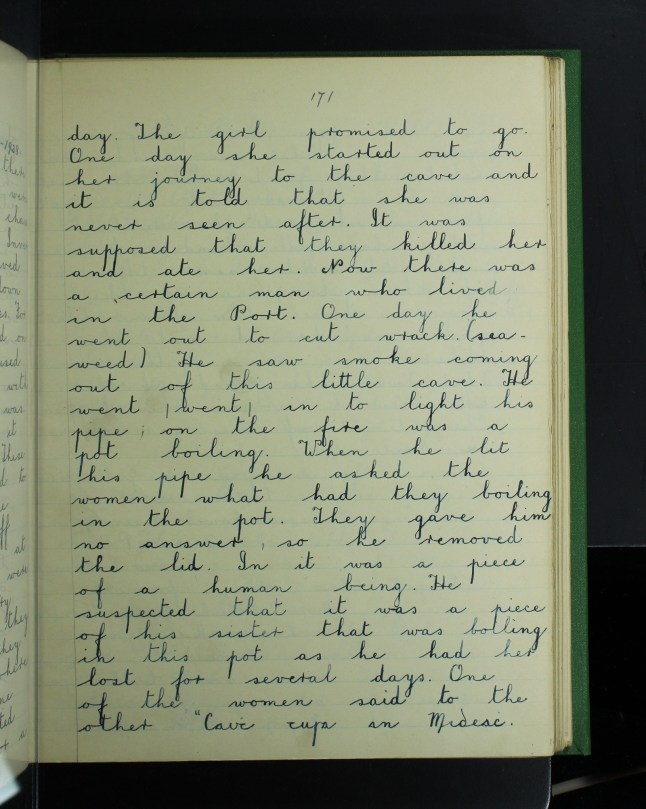 171
day. The girl promised to go.
One day she started out on
her journey to the cave and
it is told that she was
never seen after. It was
supposed that they killed her
and ate her. Now there was
a certain man who lived
in the Port. One day he
went out to cut wrack. (sea-
weed) He saw smoke coming
out of this little cave. He
went (went) in to light his
pipe; on the fire was a
pot boiling. When he lit
his pipe he asked the
women what had they boiling
in the pot. They gave him
no answer, so he removed
the lid. In it was a piece
of a human being. He
suspected that it was a piece
of his sister that was boiling
in this pot as he had her
lost for several days. One
of the women said to the
other "Caic cupa an